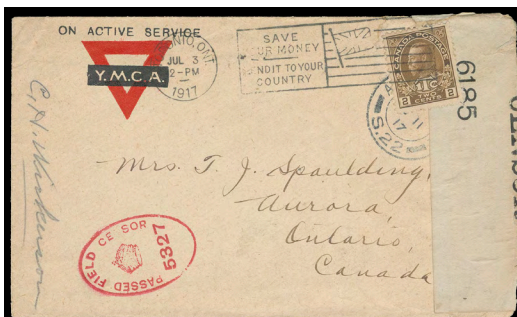 ON ACTIVE SERVICE
Y.M.C.A.
ONT
JUL 3
2-PM
1917
SAVE
YOUR MONEY
LEND IT TO YOUR
COUNTRY
CANADA POSTAGE
2 2
TWO
CENTS
6185
17
S.22
C. H.
Mrs. T. J. Spaulding,
Aurora,
Ontario,
Canada
PASSED FIELD CE SOR
5327